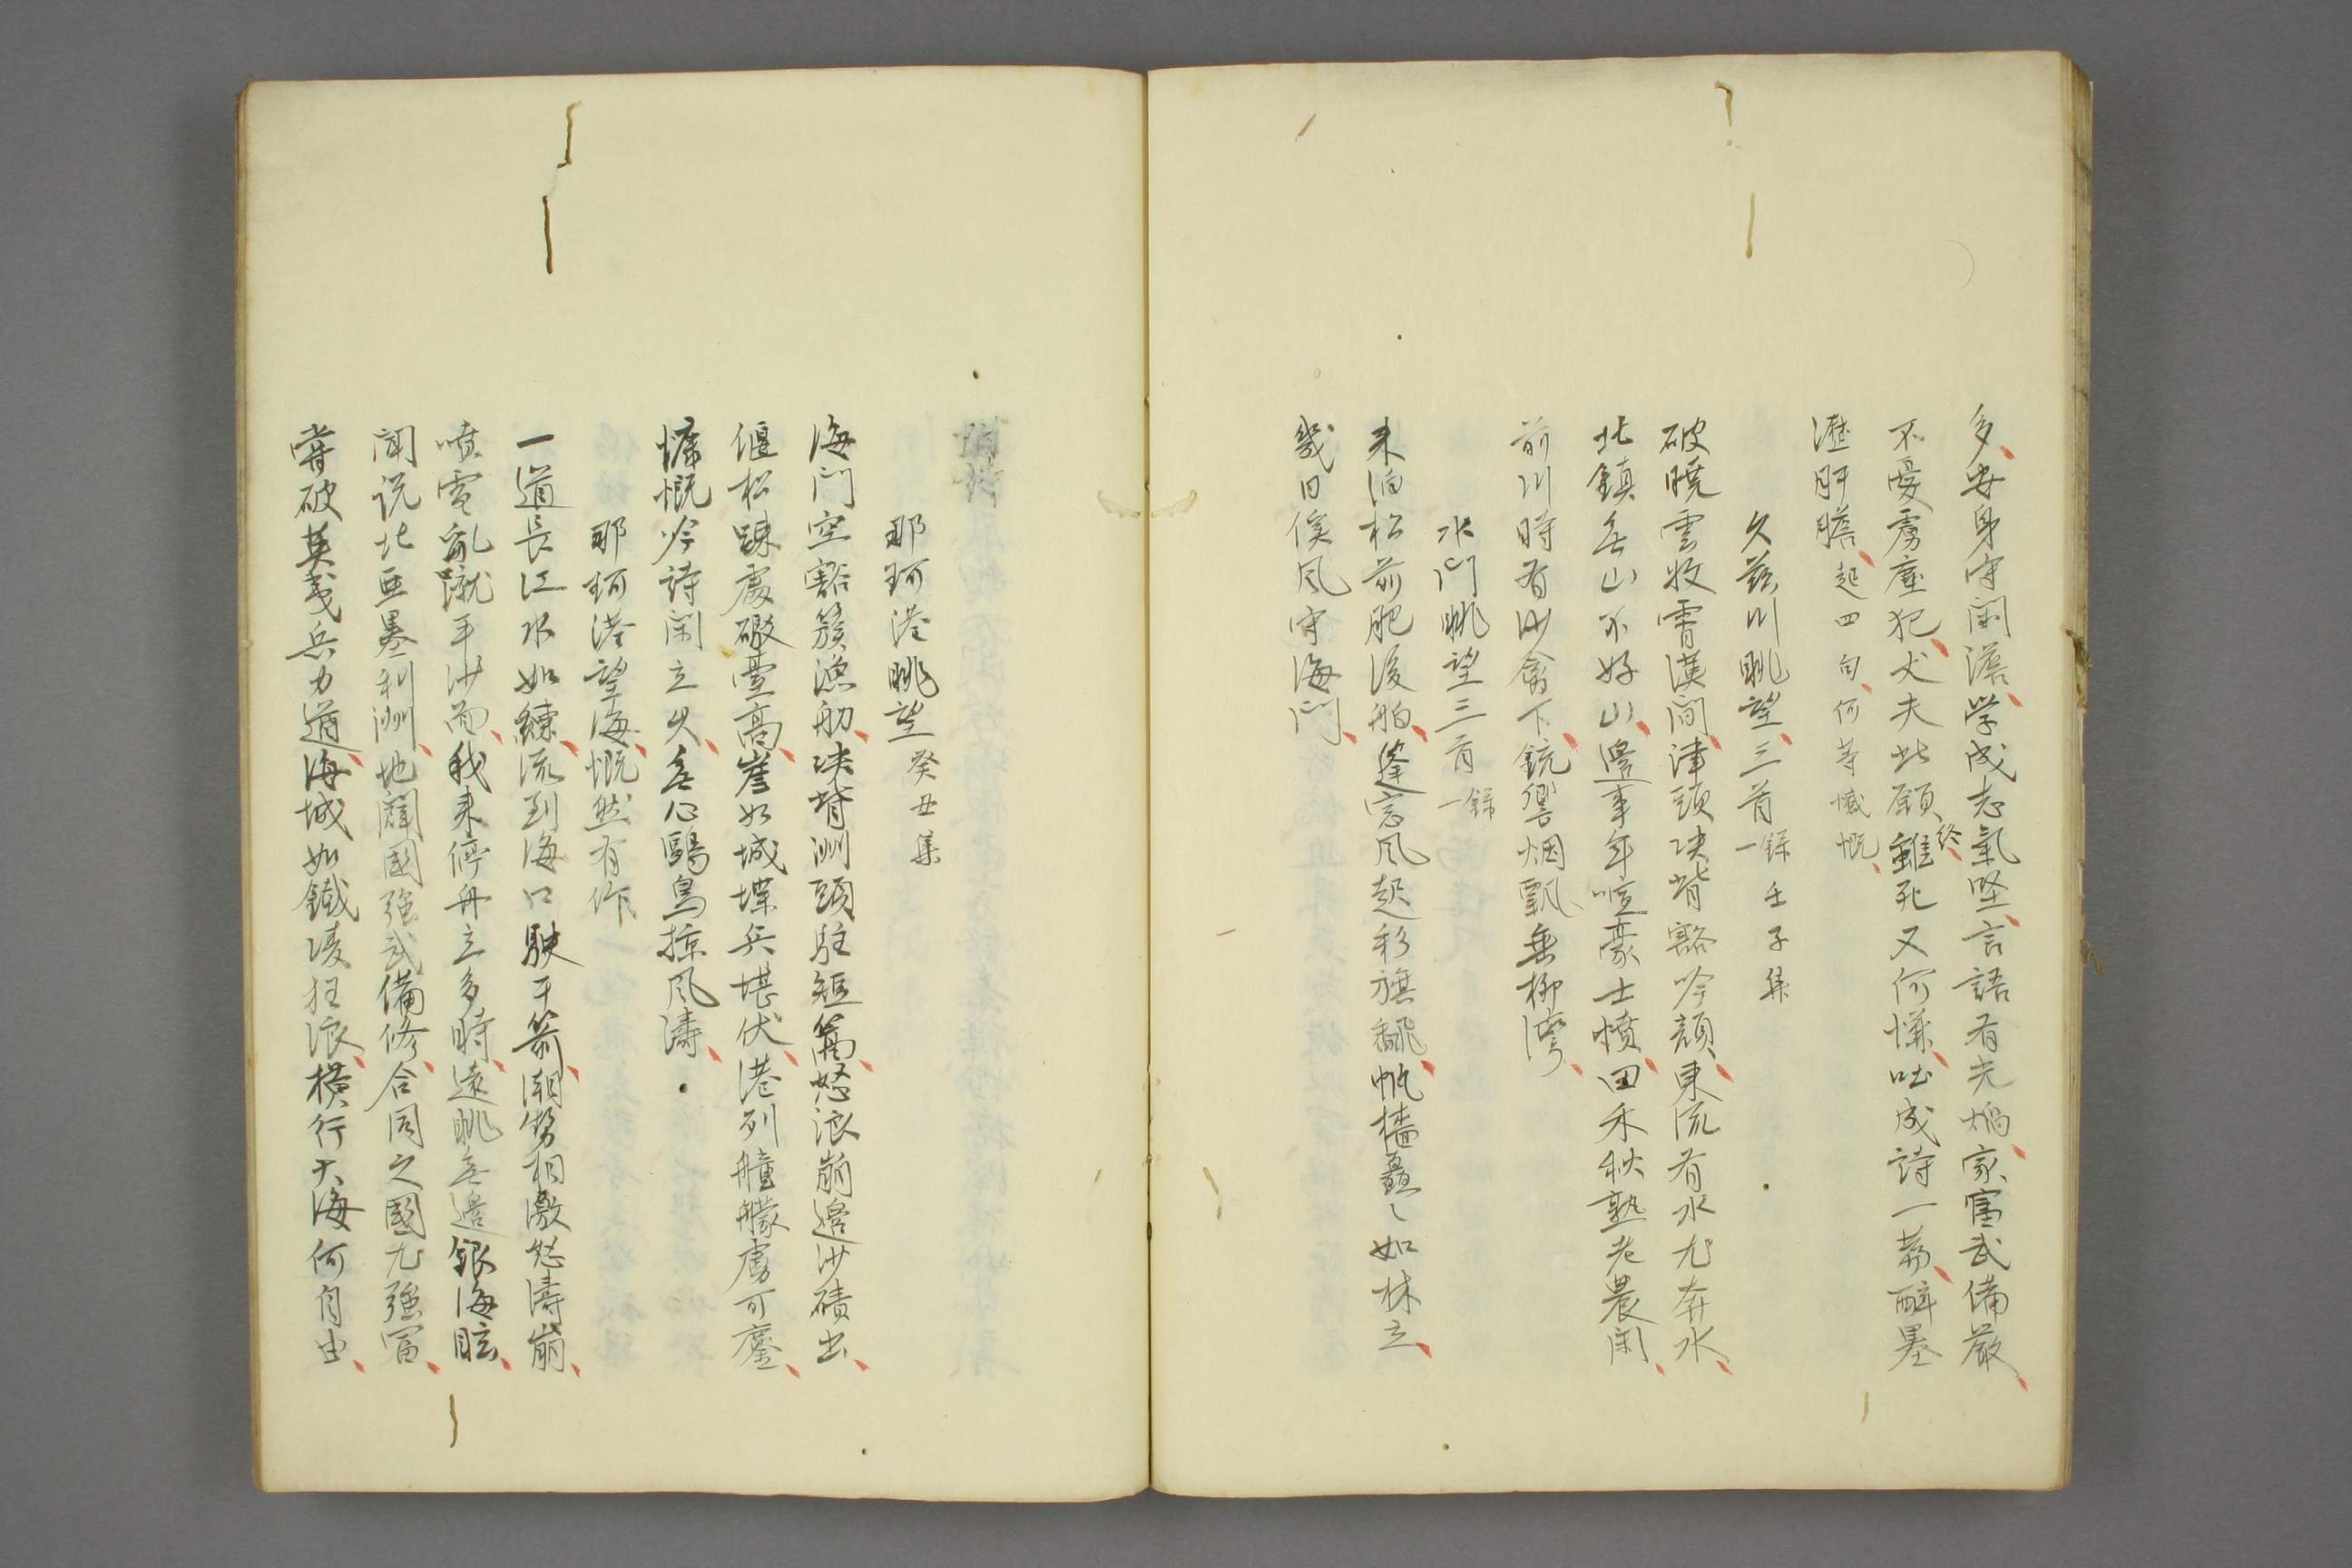 多安身守閑澹学成志氣堅言語有光焰家富武備嚴
不愛虜塵犯丈夫此願終雖死又何慊吐成詩一篇醉墨
瀝肝膽起四句何等慨慨
久兹川眺望三首録一壬子集
破曉雲收霄漢間津頭决眥豁吟顔東流有水尤奔水
北鎮無山不好山邊事年喧豪士憤田禾秋熟老農閑
前川時有沙禽下銃響烟飄垂柳灣
水門眺望三首録一
来泊松前肥後舶蓬窓風起彩旗翻帆檣矗々如林立
幾日俟風守海門
那珂港眺望癸丑集
海門空豁簇漁舠决眥洲頭駐短篙怒浪崩邊沙磧出
偃松踈處礮臺高崖如城堞兵堪伏港列艟艨虜可鏖
慷慨吟詩閑立久無心鷗鳥掠風濤
那珂港望海慨然有作
一道長江水如練流到海口駛于箭潮勢相激怒濤崩
噴雪亂蹴平沙面我来停舟立多時遠眺無邊銀海眩
聞说北亜墨利洲地闢國强武備修合同之國尤强富
嘗破英夷兵力遒海城如鐵凌狂浪横行大海何自由